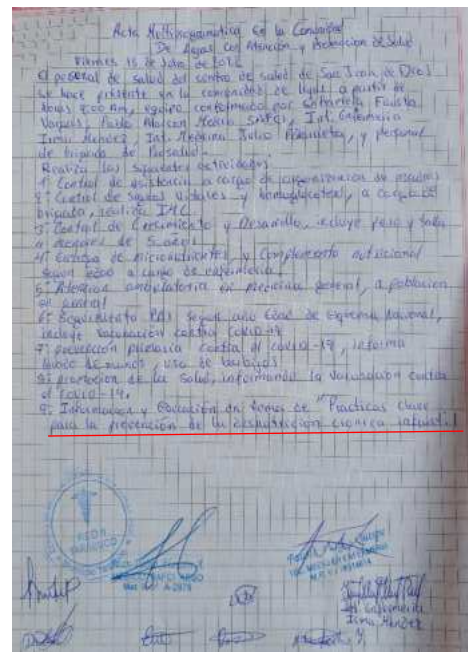 Acta Multiprogramatica En la Comunidad
De Aguas con Atención y Promocion de Salud
Viernes 15 de Julio de
El personal de salud del centro de salud de San Juan de Dios
se hace presente en la comunidad de a partir de
horas 9:00 Am, equipo conformado por Enfermera Fausta
Vasquez, Pablo Alarcon Medico SAFCI, Int. Enfermeria
Irma Mendez, Int. Medicina Julio y personal
de brigada de Prosalud.
Realiza las siguientes actividades:
1: Control de asistencia a cargo de organización de
2: Control de signos vitales y hemoglucotest, a cargo de
brigada, realiza IMC
3: Control de Crecimiento y Desarrollo, incluye peso y talla
a menores de 5 años
4: Entrega de micronutrientes y Complemento nutricional
según edad a cargo de enfermeria.
5: Atencion ambulatoria en medicina general, a poblacion
en general
6: Seguimiento PAI según edad de esquema nacional,
incluye vacunación contra Covid-19
7: prevención primaria contra el covid-19, informa
lavado de manos, uso de barbijos
8: promocion de la salud, informando la vacunacion contra
el Covid-19.
9: Informacion y Educación en temas de "Practicas Clave
para la prevención de la desnutrición cronica infantil
Int. Enfermeria
Irma Mendez